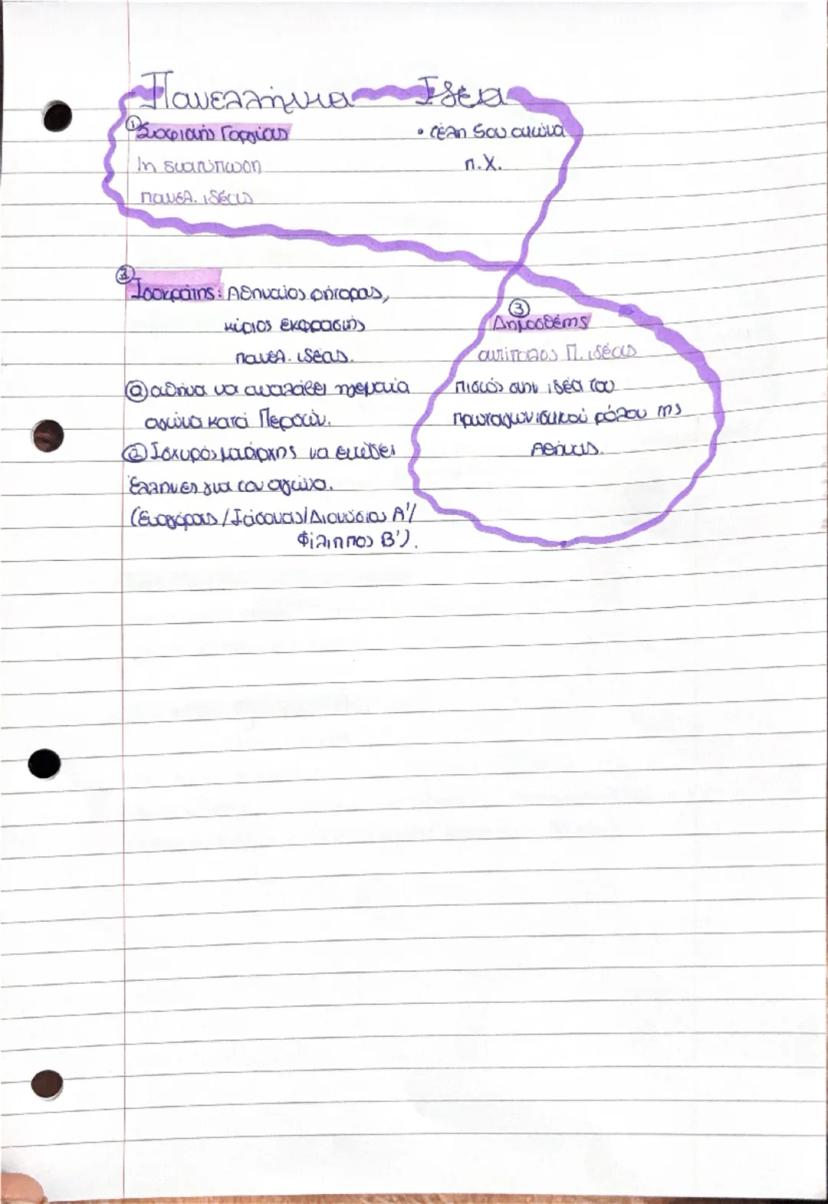 Πανελλήνια Ιδέα
① Σοφιστής Γοργίας
1η διατύπωση
πανελ. ιδέας
• τέλη 5ου αιώνα
π.Χ.
② Ισοκράτης: Αθηναίος ρήτορας,
κύριος εκφραστής
πανελ. ιδέας.
ⓐ αθήνα να αναλάβει ηγεμονία
αγώνα κατά Περσών.
ⓐ Ισχυρός μονάρχης να ενώσει
Έλληνες για τον αγώνα.
(Ευαγόρας/Ιάσονας/Διονύσιος Α'/
Φίλιππος Β').
③
Δημοσθένης
αντίπαλος Π. ιδέας
πιστός στην ιδέα του
πρωταγωνιστικού ρόλου της
Αθήνας.